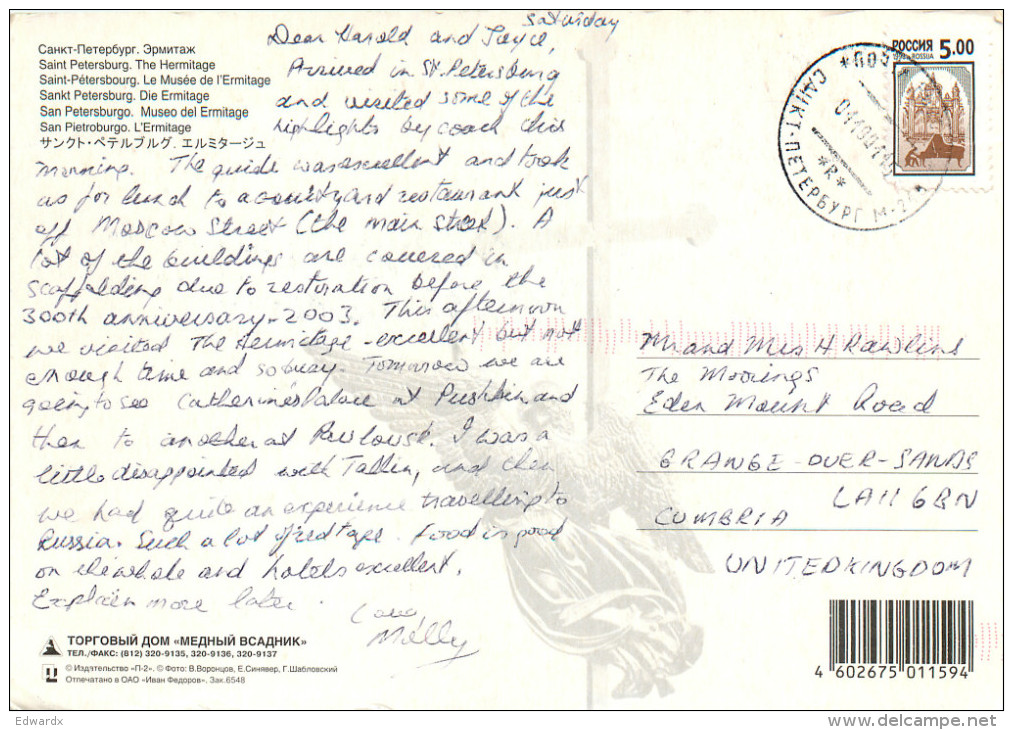 Saturday
Санкт-Петербург. Эрмитаж
Saint Petersburg. The Hermitage
Saint-Pétersbourg. Le Musée de l'Ermitage
Sankt Petersburg. Die Ermitage
San Petersburgo. Museo del Ermitage
San Pietroburgo. L'Ermitage
サンクト・ペテルブルグ. エルミタージュ
Dear Harold and Joyce,
Arrived in St. Petersburg
and visited some of the
highlights by coach this
morning. The guide was excellent and took
us for lunch to a courtyard restaurant just
off Moscow Street (the main street). A
lot of the buildings are covered in
scaffolding due to restoration before the
300th anniversary - 2003. This afternoon
we visited The Hermitage - excellent but not
enough time and so busy. Tomorrow we are
going to see Catherine's Palace at Pushkin and
then to another at Pavlovsk. I was a
little disappointed with Tallin, and then
we had quite an experience travelling to
Russia. Such a lot of red tape. Food is good
on the whole and hotels excellent.
Explain more later.
Love
Molly
РОССИЯ 5.00
ROSSIJA
САНКТ-ПЕТЕРБУРГ
Mr and Mrs H Rawlins
The Moorings
Eden Mount Road
GRANGE-OVER-SANDS
LA11 6BN
CUMBRIA
UNITED KINGDOM
ТОРГОВЫЙ ДОМ «МЕДНЫЙ ВСАДНИК»
ТЕЛ./ФАКС: (812) 320-9135, 320-9136, 320-9137
© Издательство «П-2». © Фото: В.Воронцов, Е.Синявер, Г.Шабловский
Отпечатано в ОАО «Иван Федоров». Зак.6548
4 602675 011594
Edwardx
www.delcampe.net